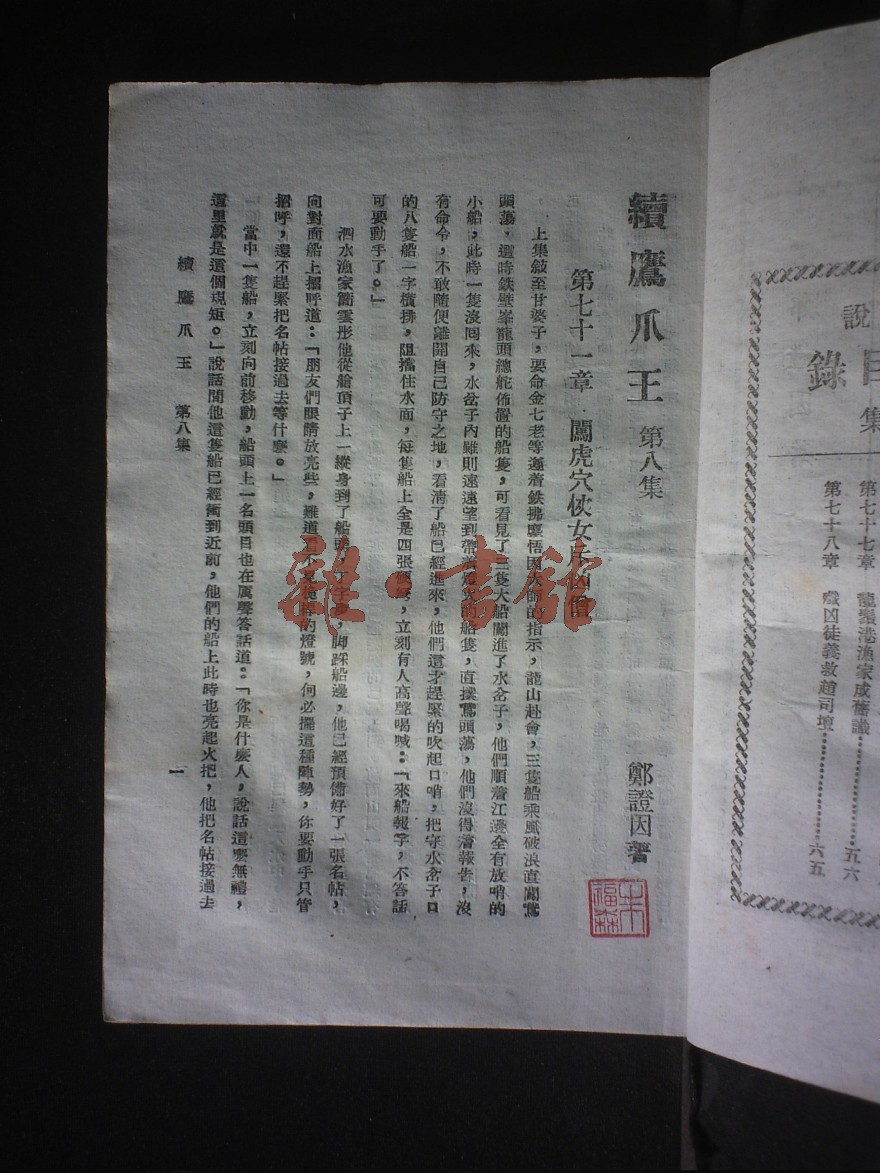 說
目
集
錄
第七十七章 龍鬚港漁家成舊識……五六
第七十八章 戲凶徒義救趙司壇……六五
續鷹爪王 第八集
鄭證因著
朱福森
第七十一章 闖虎穴俠女斥凶僧
上集敍至甘婆子，要命金七老等遵着鉄拂塵悟因大師的指示，龍山赴會，三隻船乘風破浪直闖鷲
頭蕩，這時鉄壁峯龍頭總舵佈置的船隻，可看見了三隻大船闖進了水岔子，他們順着江邊全有放哨的
小船，此時一隻沒囘來，水岔子內雖則遠遠望到帶着燈火的船隻，直撲鷲頭蕩，他們沒得着報告，沒
有命令，不敢隨便離開自己防守之地，看淸了船已經進來，他們這才趕緊的吹起口哨，把守水岔子口
的八隻船一字橫排，阻擋住水面，每隻船上全是四張匣弩，立刻有人高聲喝喊：「來船報字，不答話
可要動手了。」
泗水漁家簡雲彤他從艙頂子上一縱身到了船頭，丁字步，脚踩船邊，他已經預備好了一張名帖，
向對面船上招呼道：「朋友們眼睛放亮些，難道看不見桅桿的燈號，何必擺這種陣勢，你要動手只管
招呼，還不趕緊把名帖接過去等什麽。」
當中一隻船，立刻向前移動，船頭上一名頭目也在厲聲答話道：「你是什麽人，說話這麽無禮，
這里就是這個規矩。」說話間他這隻船已經衝到近前，他們的船上此時也亮起火把，他把名帖接過去
續鷹爪王 第八集
一
雜·書館